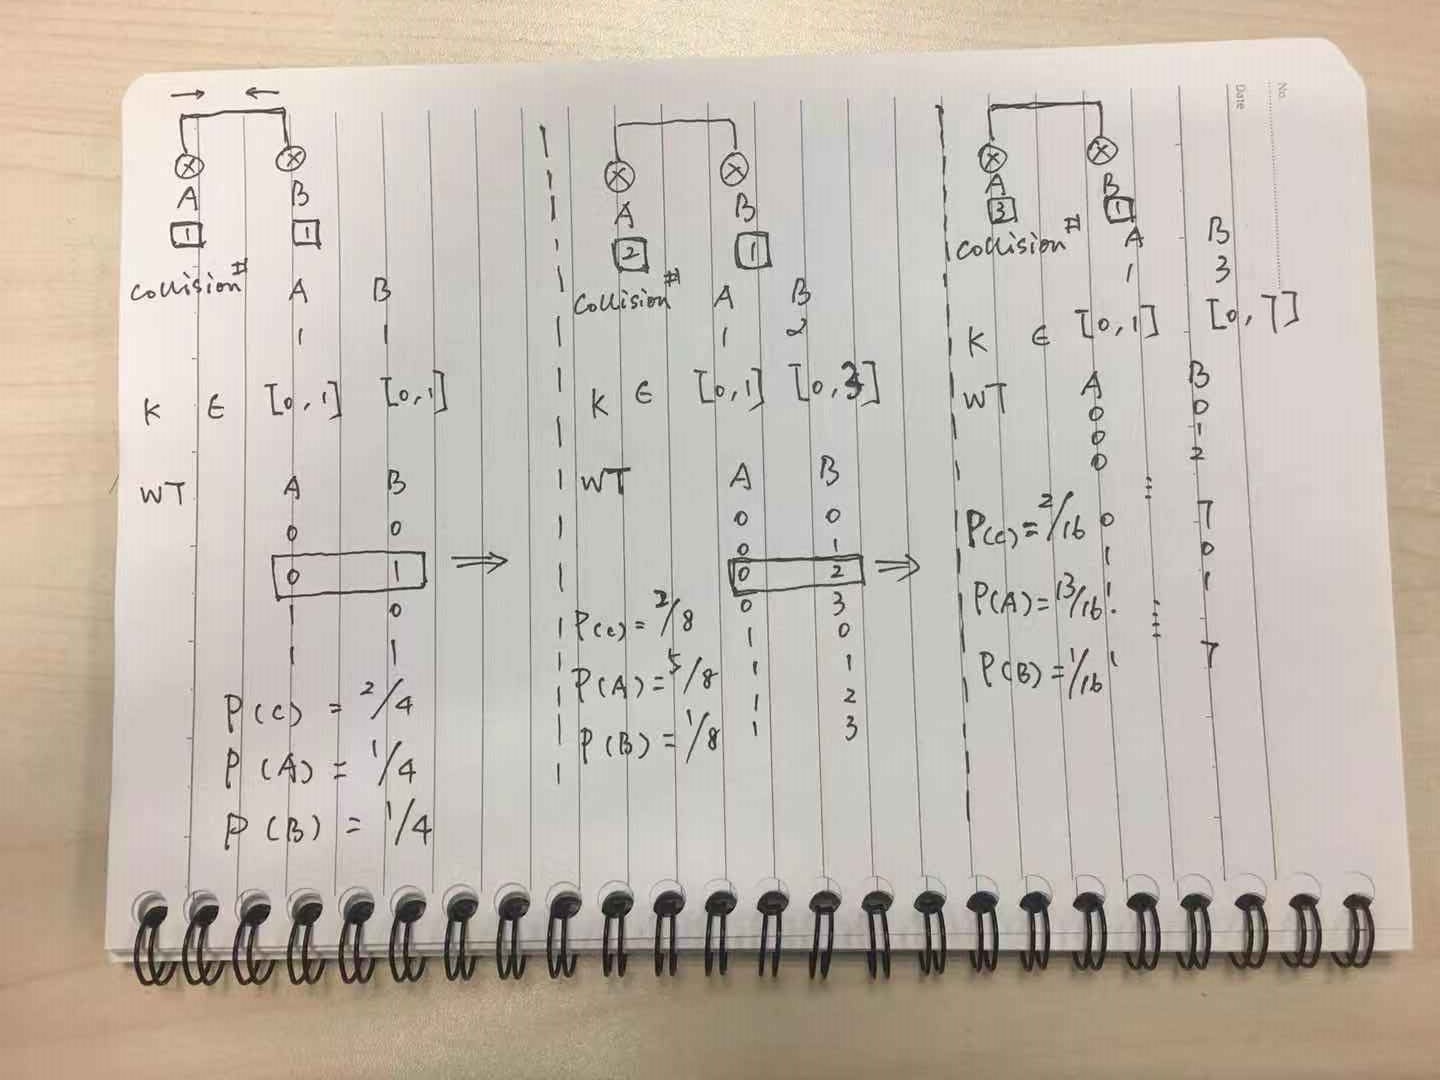 A B
1 1
Collision# A B
1 1
K ∈ [0,1] [0,1]
WT A B
0 0
0 1
1 0
1 1
P(C) = 2/4
P(A) = 1/4
P(B) = 1/4
A B
2 1
Collision# A B
1 2
K ∈ [0,1] [0,3]
WT A B
0 0
0 1
0 2
0 3
1 0
1 1
1 2
1 3
P(C) = 2/8
P(A) = 5/8
P(B) = 1/8
No.
Date
A B
3 1
Collision# A B
1 3
K ∈ [0,1] [0,7]
WT A B
0 0
0 1
0 2
0 7
1 0
1 1
1 7
P(C) = 2/16
P(A) = 13/16
P(B) = 1/16